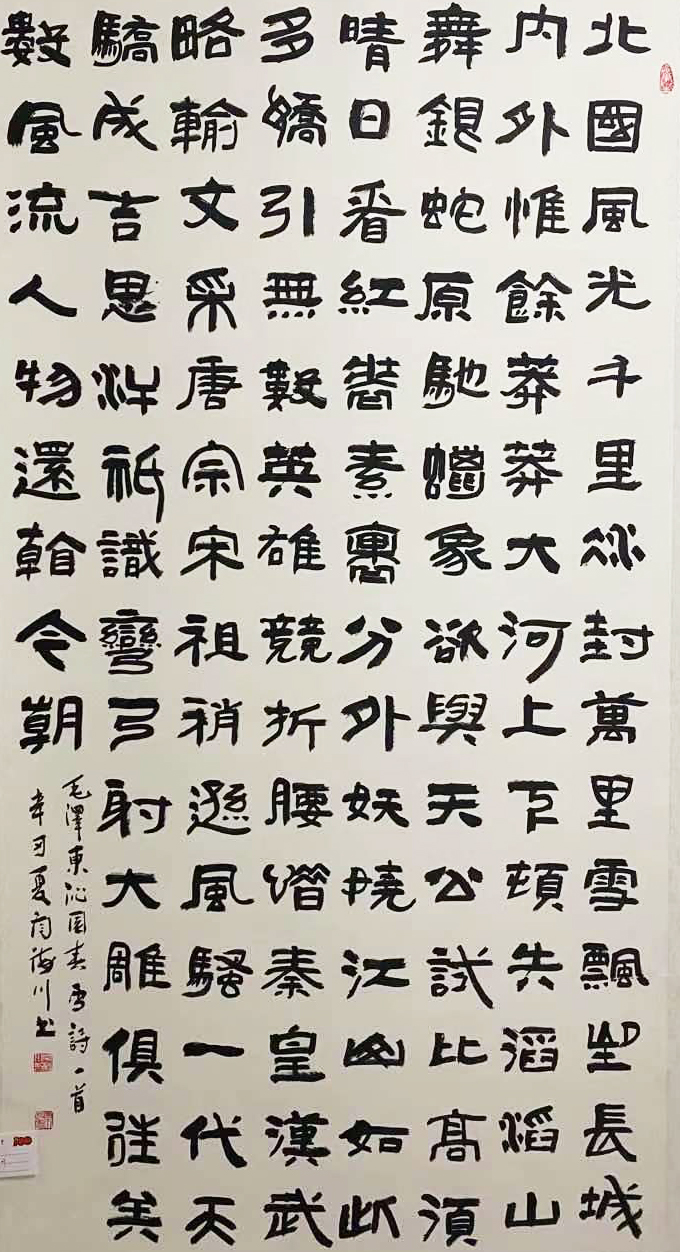 北國風光千里冰封萬里雪飄望長城
内外惟餘莽莽大河上下頓失滔滔山
舞銀蛇原馳蠟象欲與天公試比高須
晴日看紅裝素裹分外妖嬈江山如此
多嬌引無數英雄競折腰惜秦皇漢武
略輸文采唐宗宋祖稍遜風騷一代天
驕成吉思汗祇識彎弓射大雕俱往矣
數風流人物還看今朝
毛澤東沁園春雪詩一首
辛丑夏海川书